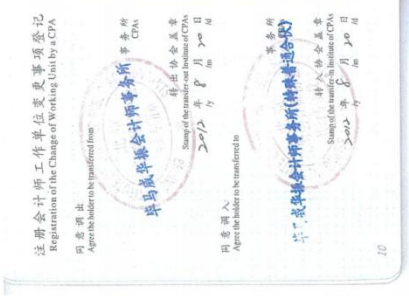 注册会计师工作单位变更事项登记
Registration of the Change of Working Unit by a CPA
同意调出
Agree the holder to be transferred from
毕马威华振会计师事务所 事务所
CPAs
转出协会盖章
Stamp of the transfer-out Institute of CPAs
2012 年 8 月 20 日
/y /m /d
同意调入
Agree the holder to be transferred to
毕马威华振会计师事务所(特殊普通合伙) 事务所
CPAs
转入协会盖章
Stamp of the transfer-in Institute of CPAs
2012 年 8 月 20 日
/y /m /d
10